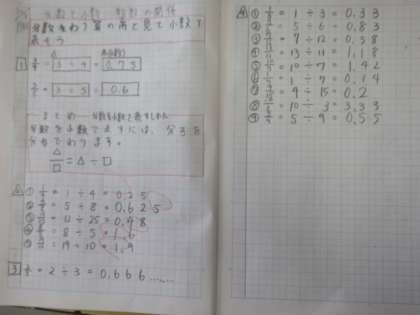 分数と小数 整数の関係
分数をわり算の商で見て小数で
表そう
1 3/4 = 3 ÷ 4 = 0.75
3/5 = 3 ÷ 5 = 0.6
まとめ
分数を小数で表すには、分子を
分母でわります。
△/□ = △ ÷ □
2 ① 1/4 = 1 ÷ 4 = 0.25
② 5/8 = 5 ÷ 8 = 0.625
③ 12/25 = 12 ÷ 25 = 0.48
④ 8/5 = 8 ÷ 5 = 1.6
⑤ 19/10 = 19 ÷ 10 = 1.9
3 2/3 = 2 ÷ 3 = 0.666……
4 ① 1/3 = 1 ÷ 3 = 0.33
② 5/6 = 5 ÷ 6 = 0.83
③ 7/12 = 7 ÷ 12 = 0.58
④ 13/11 = 13 ÷ 11 = 1.18
⑤ 10/7 = 10 ÷ 7 = 1.42
⑥ 1/7 = 1 ÷ 7 = 0.14
÷ 15 = 0.2
⑧ 10/3 = 10 ÷ 3 = 3.33
⑨ 5/9 = 5 ÷ 9 = 0.55